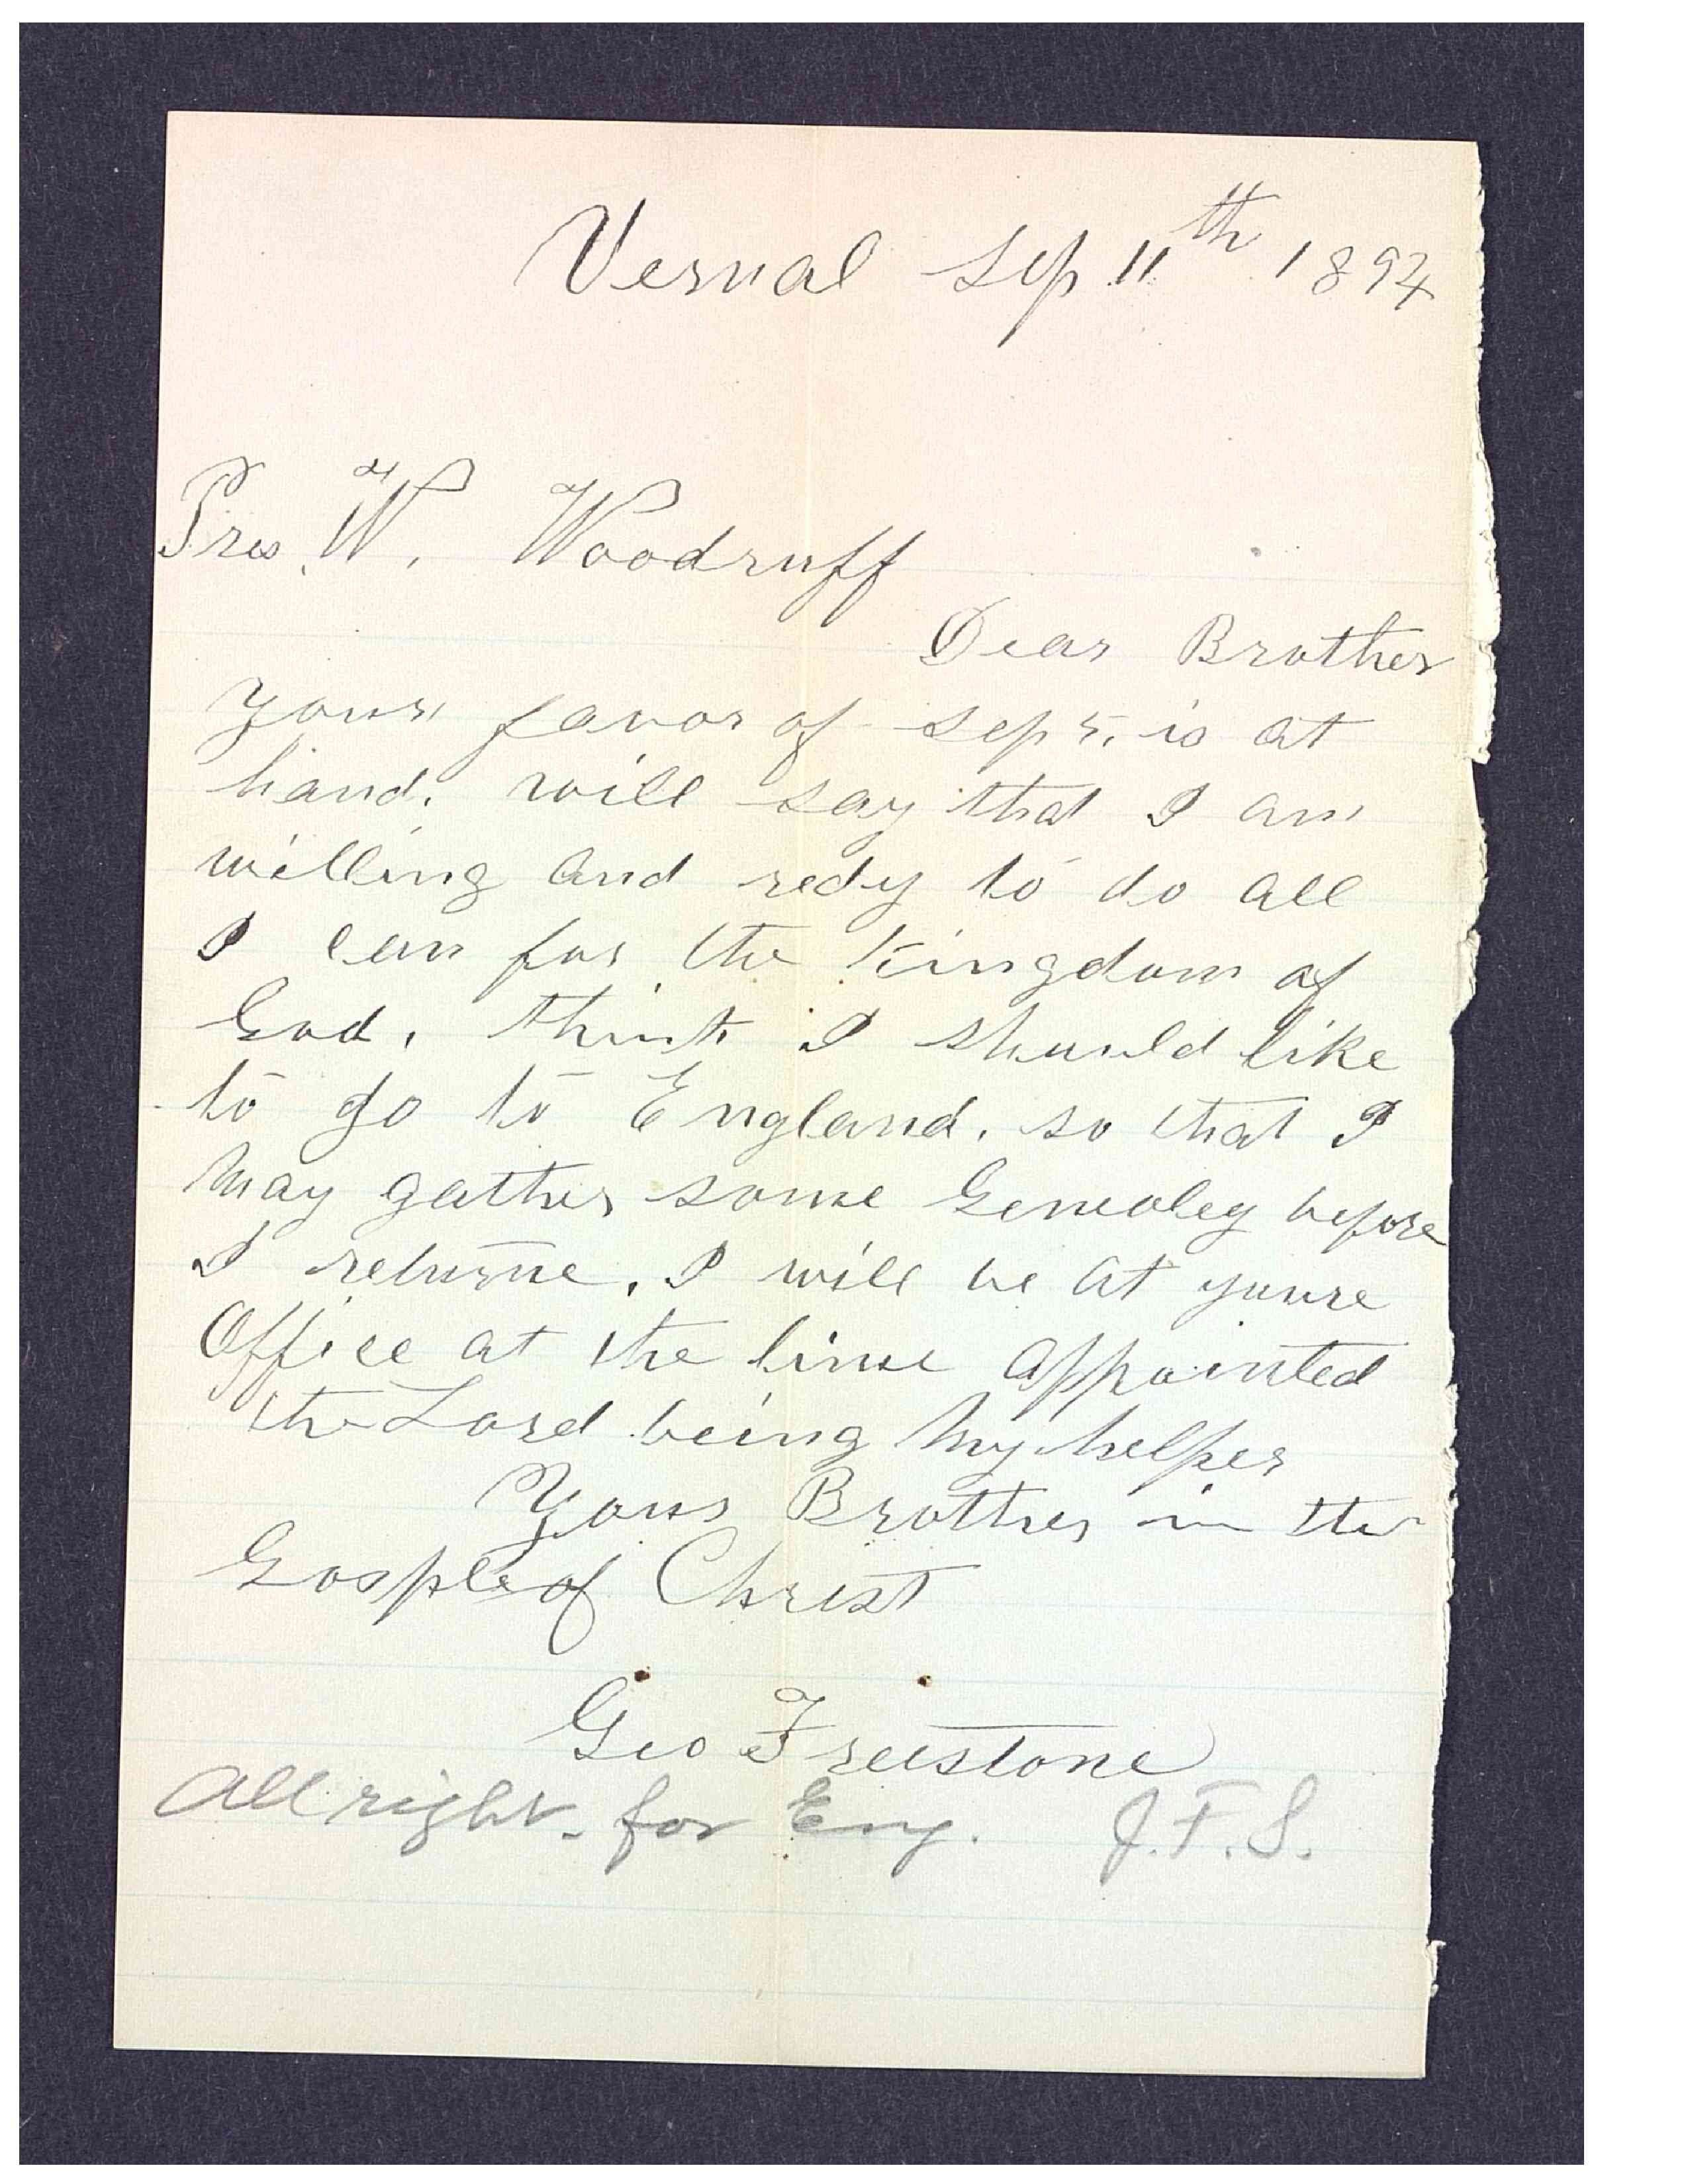 Vernal Sep 11th 1894
Pres. W. Woodruff
Dear Brother
Your favor of Sep 5. is at
hand. will say that I am
willing and redy to do all
I can for the Kingdom of
God. think I should like
to go to England. so that I
May gather some Geneoley before
I returne. I will be at youre
Office at the time appointed
the Lord being My helper
Your Brother in the
Gosple of Christ
Geo Freestone
All right. for Eng. J.F.S.